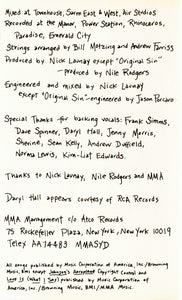 Mixed at Townhouse, Sarm East & West, Air Studios
Recorded at the Manor, Power Station, Rhinoceros,
Paradise, Emerald City
Strings arranged by Bill Motzing and Andrew Farriss
Produced by Nick Launay except "Original Sin"
- produced by Nile Rodgers
Engineered and mixed by Nick Launay
except "Original Sin" - engineered by Jason Corsaro
Special Thanks for backing vocals: Frank Simms,
Dave Spinner, Daryl Hall, Jenny Morris,
Sherine, Sean Kelly, Andrew Duffield,
Norma Lewis, Kim-Liat Edwards.
Thanks to Nick Launay, Nile Rodgers and MMA
Daryl Hall appears courtesy of RCA Records
MMA Management c/o Atco Records
75 Rockefeller Plaza, New York, New York 10019
Telex AA74483 MMASYD
All songs published by Music Corporation of America, Inc./Browning
Music, BMI except Johnson's Aeroplane Copyright Control and
Love Is (What I Say) published by Music Corporation of
America, Inc./Browning Music, BMI/MMA Music.